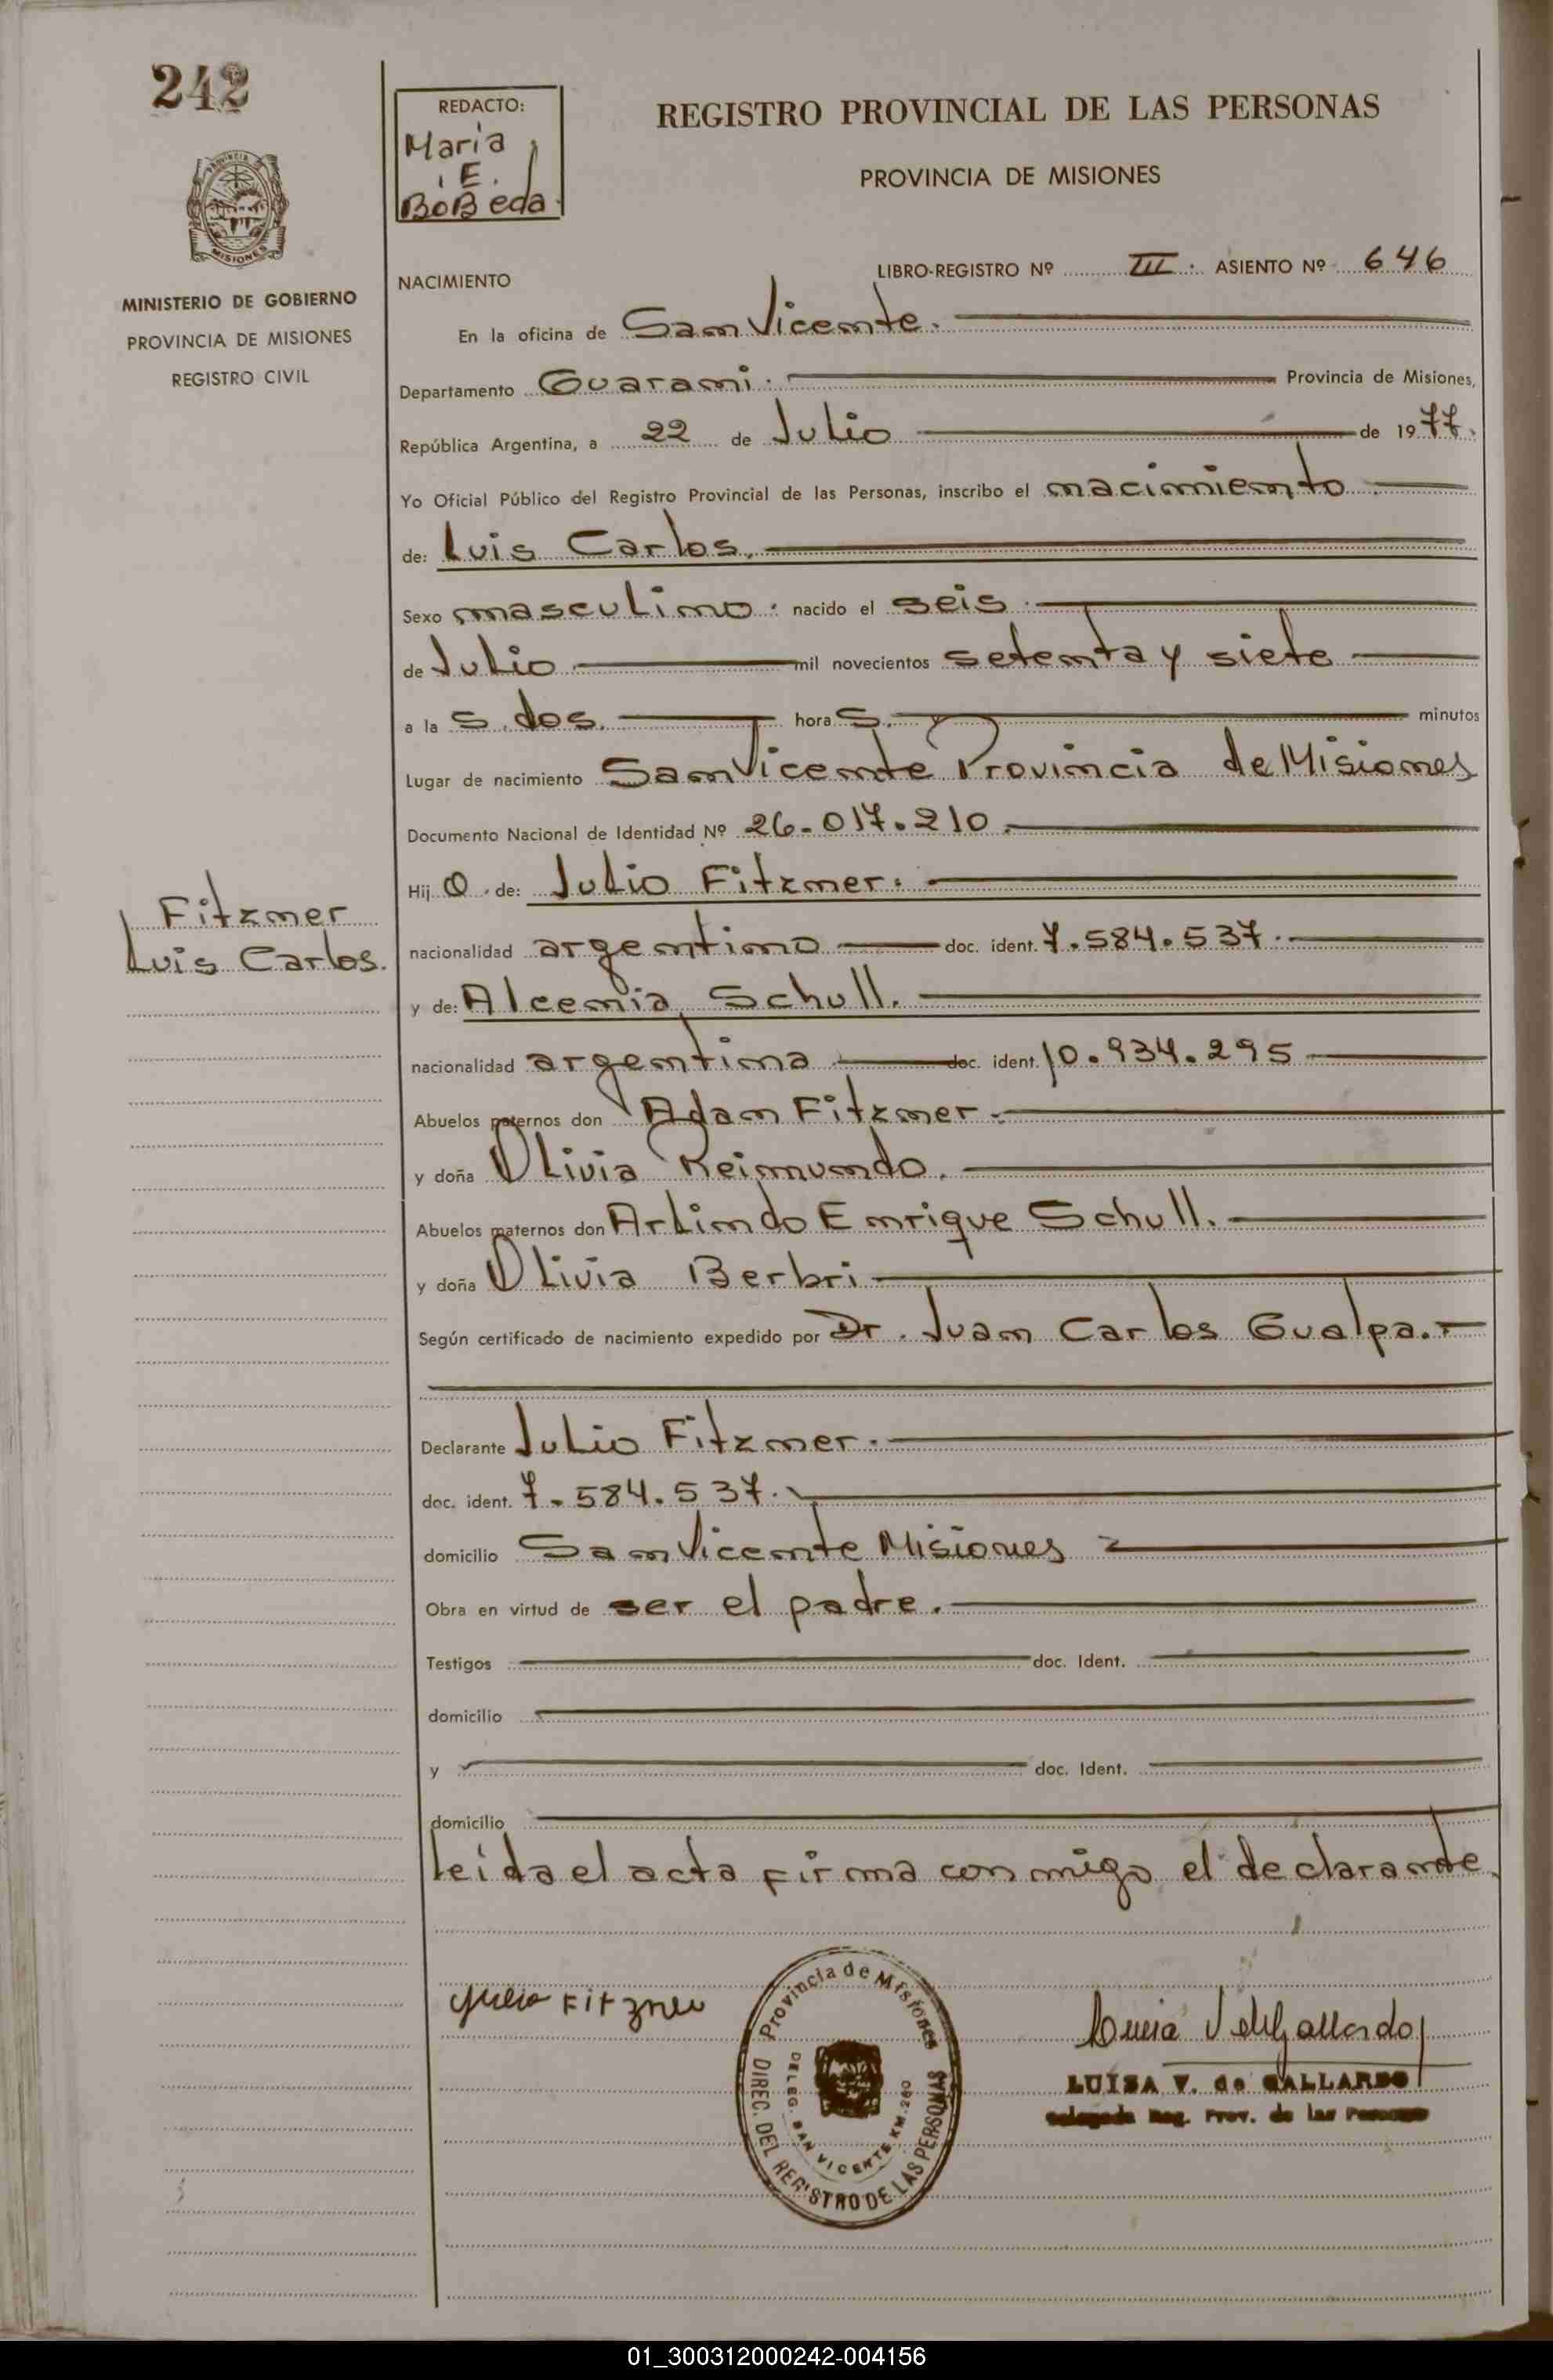 242
REDACTO:
Maria
E.
BoBeda
REGISTRO PROVINCIAL DE LAS PERSONAS
PROVINCIA DE MISIONES
PROVINCIA
MISIONES
MINISTERIO DE GOBIERNO
PROVINCIA DE MISIONES
REGISTRO CIVIL
NACIMIENTO
LIBRO-REGISTRO Nº III. ASIENTO Nº 646
En la oficina de San Vicente.
Departamento Guarani. Provincia de Misiones,
República Argentina, a 22 de Julio de 1977.
Yo Oficial Público del Registro Provincial de las Personas, inscribo el nacimiento
de: Luis Carlos.
Sexo masculino. nacido el seis.
de Julio mil novecientos setenta y siete
a la s. dos. hora s. minutos
Lugar de nacimiento San Vicente Provincia de Misiones
Documento Nacional de Identidad Nº 26-017.210.
Hij o de: Julio Fitzner.
nacionalidad argentino doc. ident. 7.584.537.
y de: Alcenia Schull.
nacionalidad argentina doc. ident. 10.934.295
Abuelos paternos don Adam Fitzner.
y doña Olivia Reimundo.
Abuelos maternos don Arlindo Enrique Schull.
y doña Olivia Berbri
Según certificado de nacimiento expedido por Dr. Juan Carlos Gualpa.
Declarante Julio Fitzner.
doc. ident. 7.584.537.
domicilio San Vicente Misiones
Obra en virtud de ser el padre.
Testigos doc. Ident.
domicilio
y doc. Ident.
domicilio
leida el acta firma con migo el declarante.
Fitzner
Luis Carlos.
Julio Fitzner
Provincia de Misiones
DIREC. DEL REGISTRO DE LAS PERSONAS
DELEG. SAN VICENTE KM. 260
LUISA V. de GALLARDO
Delegada Reg. Prov. de las Personas
01_300312000242-004156